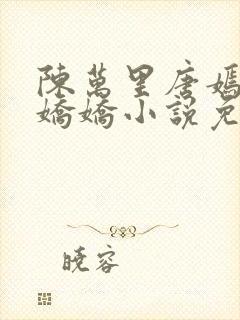 陳萬里唐嫣
嬌嬌小說免
曉容